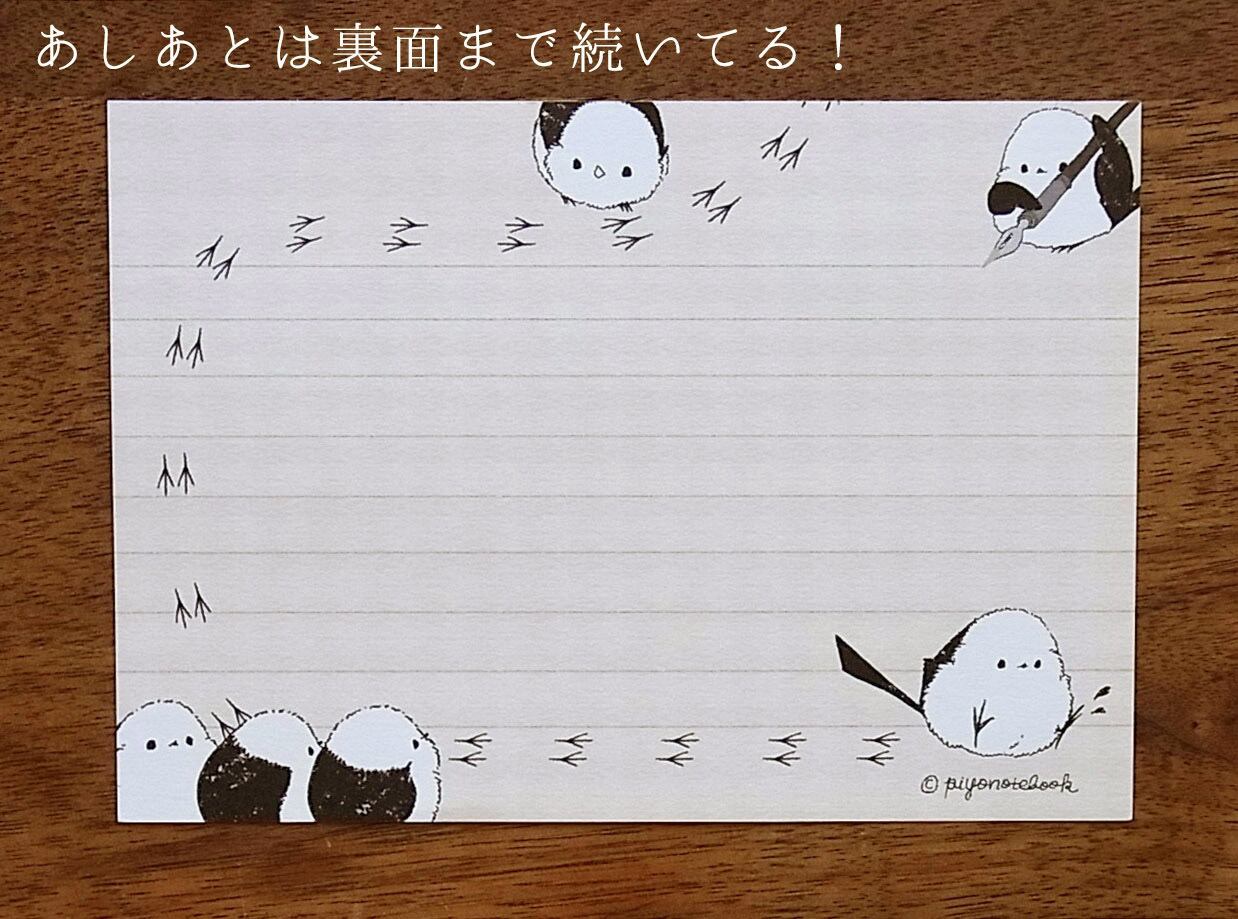 あしあとは裏面まで続いてる！
© piyonotebook